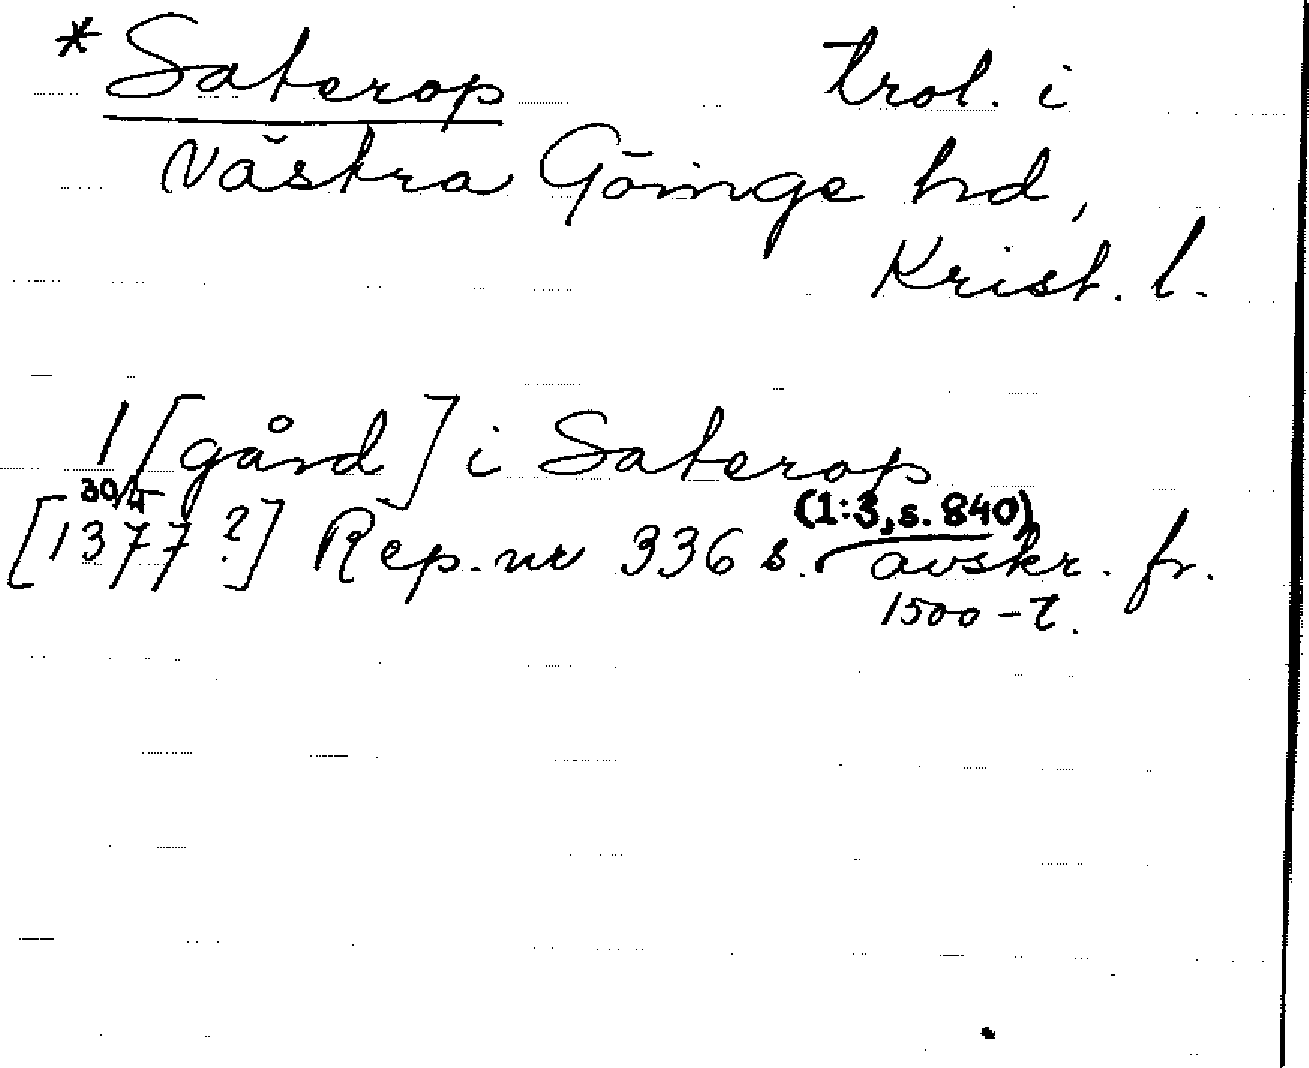 * Saterop trol. i
Västra Göinge hd,
Krist. l.
1 [gård] i Saterop
30/4
[1377?] Rep. nr 336 s. (1:3, s. 840) avskr. fr.
1500-t.